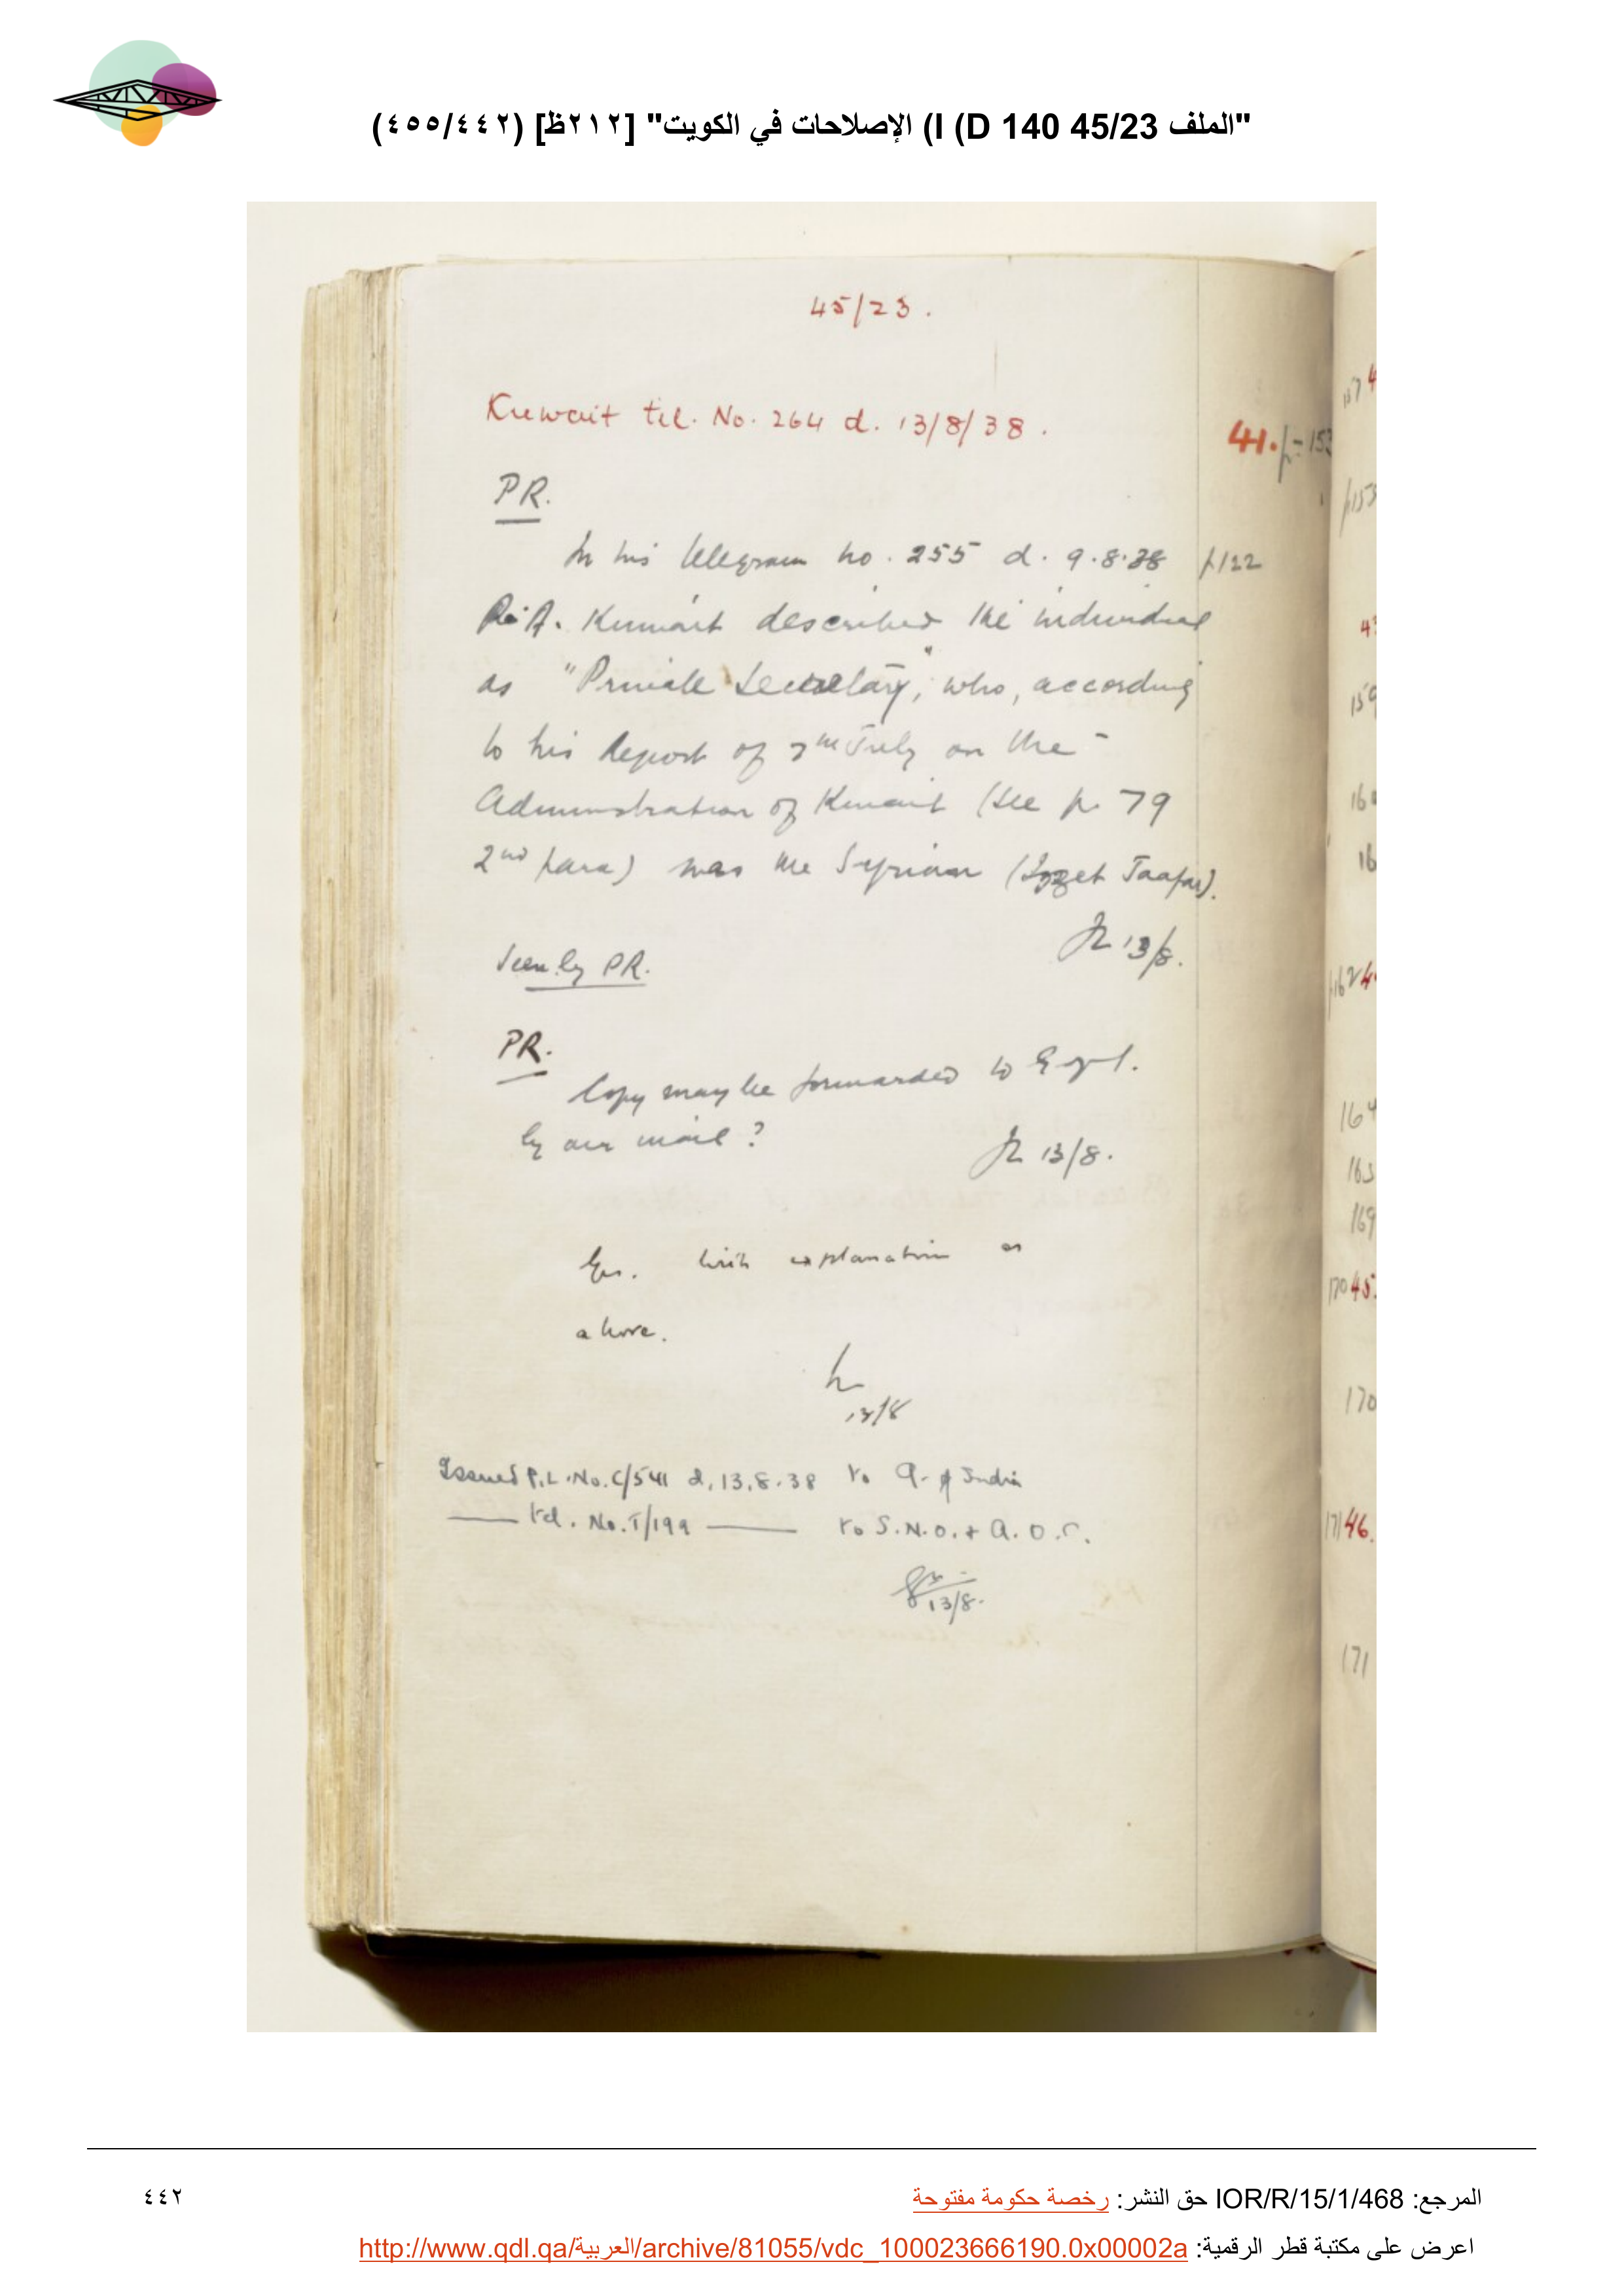 "الملف 45/23 I (D 140) الإصلاحات في الكويت" [٢١٢ظ] (٤٥٥/٤٤٢)
45/23.
Kuwait tel. No. 264 d. 13/8/38.
41. p-153
PR.
In his telegram no. 255 d. 9.8.38 p/122
P.A. Kuwait described the individual
as "Private Secretary", who, according
to his Report of 7th July on the
Administration of Kuwait (see p. 79
2nd para) was the Syrian (Izzet Jaafar).
13/8.
Seen by PR.
PR.
Copy may be forwarded to
by air mail?
13/8.
Yes. With explanation as
above.
13/8
Issued P.L. No. C/541 d. 13.8.38 to G. of India
—— tel. No. T/199 —— to S.N.O. + A.O.C.
13/8.
157 4
159
160
16
164
169
170 45.
170
171 46.
171
المرجع: IOR/R/15/1/468 حق النشر: رخصة حكومة مفتوحة
٤٤٢
اعرض على مكتبة قطر الرقمية: http://www.qdl.qa/العربية/archive/81055/vdc_100023666190.0x00002a